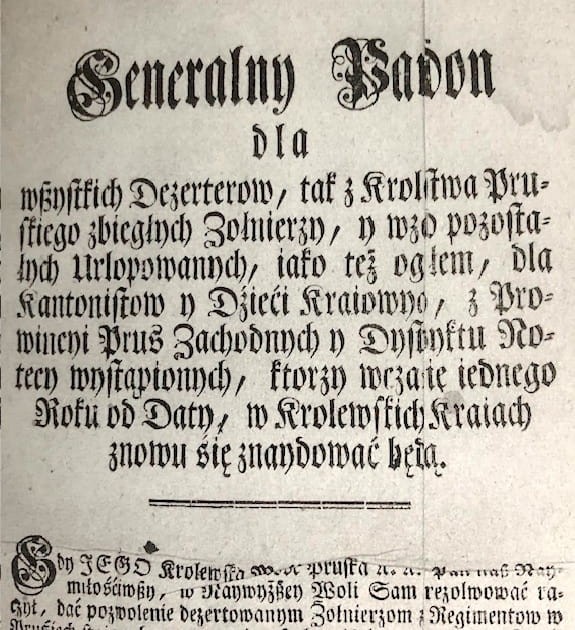 Generalny Pardon
dla
wßystkich Dezerterow, tak z Krolestwa Pru-
skiego zbiegłych Zołnierzy, y wzd pozosta-
łych Urlopowanych, iako też ogłem, dla
Kantonistow y Dźieći Kraiowyc, z Pro-
wincyi Prus Zachodnych y Dystryktu No-
tecy wystąpionych, ktorzy wczaie iednego
Roku od Daty, w Krolewskich Kraiach
znowu się znaydować będą.
Gdy JEGO Krolewska Pruska Nay-
miłośćiwßy, w Naywyżßey Woli Sam rezolwować ra-
czył, dać pozwolenie dezertowanym Zołnierzom z Regimentow w